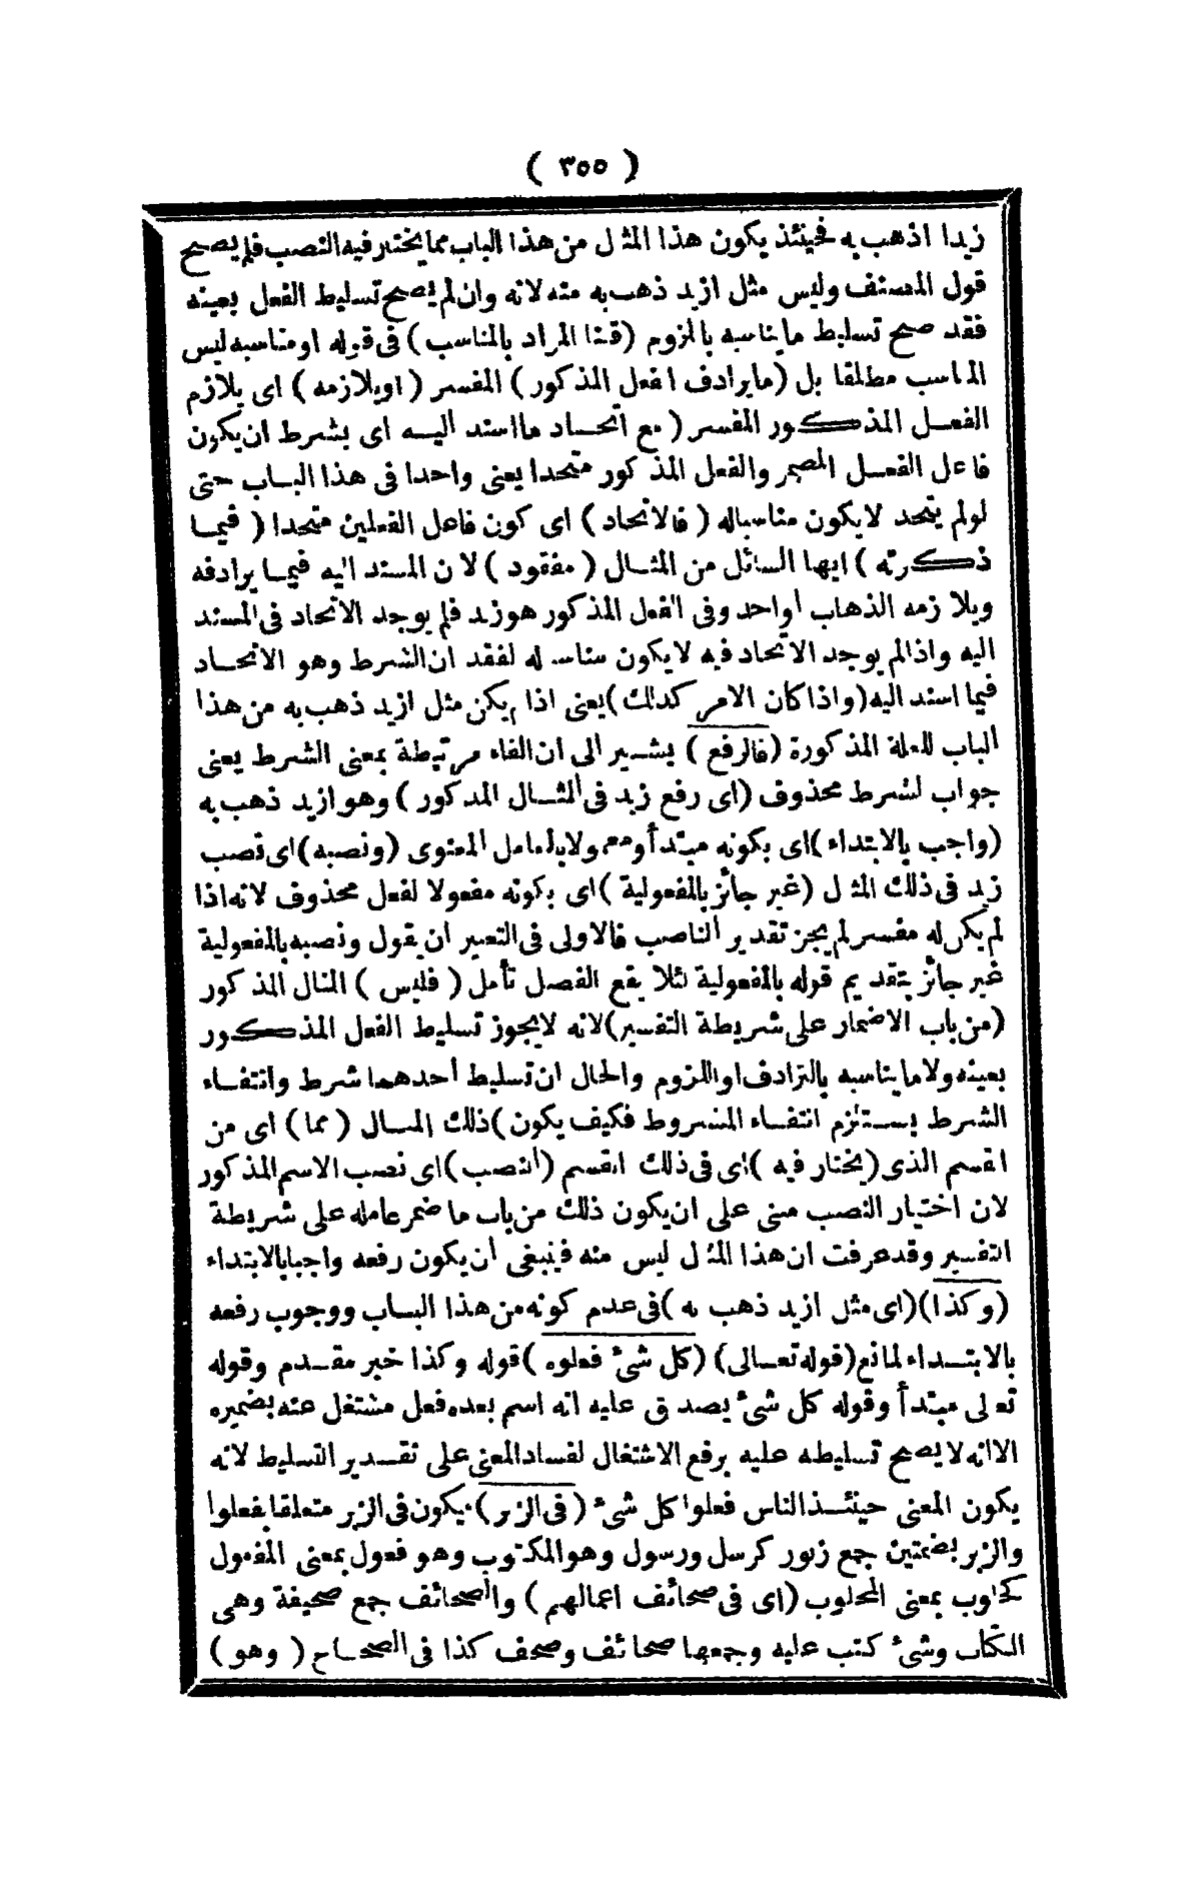 ( ٣٥٥ )
زيدا اذهب به فحينئذ يكون هذا المثال من هذا الباب مما يختار فيه النصب فلم يصح
قول المصنف وليس مثل ازيد ذهب به منه لانه وان لم يصح تسليط الفعل بعينه
فقد صح تسليط ما يناسبه بالزوم (قلنا المراد بالمناسب) فى قوله او مناسبه ليس
المناسب مطلقا بل (ما يرادف الفعل المذكور) المفسر (او يلازمه) اى يلازم
الفعل المذكور المفسر (مع اتحاد ما اسند اليه اى بشرط ان يكون
فاعل الفعل المضمر والفعل المذكور متحدا يعنى واحدا فى هذا الباب حتى
لو لم يتحد لا يكون مناسباله (فالاتحاد) اى كون فاعل الفعلين متحدا (فيما
ذكرته) ايها السائل من المثال (مفقود) لان المسند اليه فيما يرادفه
ويلازمه الذهاب اواحد وفى الفعل المذكور هو زيد فلم يوجد الاتحاد فى المسند
اليه واذا لم يوجد الاتحاد فيه لا يكون مناسبا له لفقد ان الشرط وهو الاتحاد
فيما اسند اليه (واذا كان الامر كذلك) يعنى اذا لم يكن مثل ازيد ذهب به من هذا
الباب للعلة المذكورة (فالرفع) يشير الى ان الفاء مرتبطة بمعنى الشرط يعنى
جواب لشرط محذوف (اى رفع زيد فى المثال المذكور) وهو ازيد ذهب به
(واجب بالابتداء) اى بكونه مبتدأ ومعمولا بالعامل المعنوى (ونصبه) اى نصب
زيد فى ذلك المثال (غير جائز بالمفعولية) اى بكونه مفعولا لفعل محذوف لانه اذا
لم يكن له مفسر لم يجز تقدير الناصب فالاولى فى التعبير ان يقول ونصبه بالمفعولية
غير جائز بتقديم قوله بالمفعولية لئلا يقع الفصل تأمل (فليس) المثال المذكور
(من باب الاضمار على شريطة التفسير) لانه لا يجوز تسليط الفعل المذكور
بعينه ولا ما يناسبه بالترادف او اللزوم والحال ان تسليط أحدهما شرط وانتفاء
الشرط يستلزم انتفاء المشروط فكيف يكون) ذلك المثال (مما) اى من
القسم الذى (يختار فيه) اى فى ذلك القسم (النصب) اى نصب الاسم المذكور
لان اختيار النصب مبنى على ان يكون ذلك من باب ما ضمر عامله على شريطة
التفسير وقد عرفت ان هذا المثال ليس منه فينبغى أن يكون رفعه واجبا بالابتداء
(وكذا) (اى مثل ازيد ذهب به) فى عدم كونه من هذا الباب ووجوب رفعه
بالابتداء لمانع (قوله تعالى) (كل شئ فعلوه) قوله وكذا خبر مقدم وقوله
تعالى مبتدأ وقوله كل شئ يصدق عليه انه اسم بعده فعل مشتغل عنه بضميره
الا انه لا يصح تسليطه عليه برفع الاشتغال لفساد المعنى على تقدير التسليط لانه
يكون المعنى حينئذ الناس فعلوا كل شئ (فى الزبر) فيكون فى الزبر متعلقا بفعلوا
والزبر بضمتين جمع زبور كرسل ورسول وهو المكتوب وهو فعول بمعنى المفعول
كحلوب بمعنى المحلوب (اى فى صحائف اعمالهم) والصحائف جمع صحيفة وهى
الكتاب وشئ كتب عليه وجمعها صحائف وصحف كذا فى الصحاح (وهو)